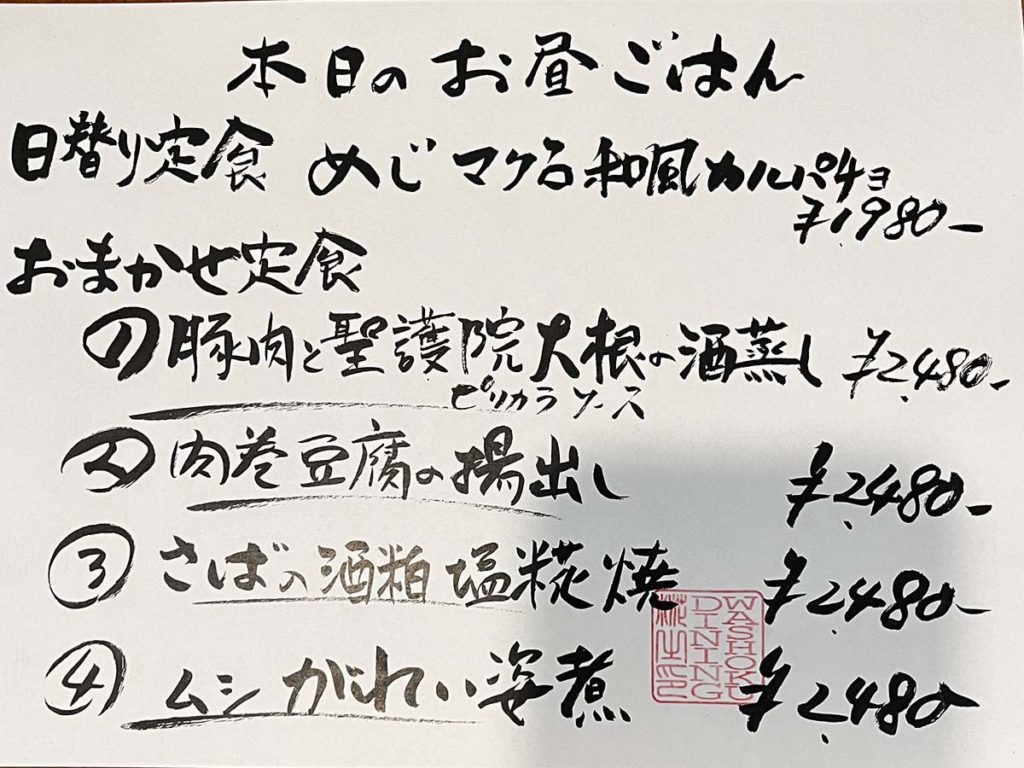 本日のお昼ごはん
日替り定食 めじマグロ和風カルパチョ
¥1,980-
おまかせ定食
① 豚肉と聖護院大根の酒蒸し ¥2,480-
ピリカラソース
② 肉巻豆腐の揚出し ¥2,480-
③ さばの酒粕塩糀焼 ¥2,480-
④ ムシがれい姿煮 ¥2,480-
WASHOKU
DINING